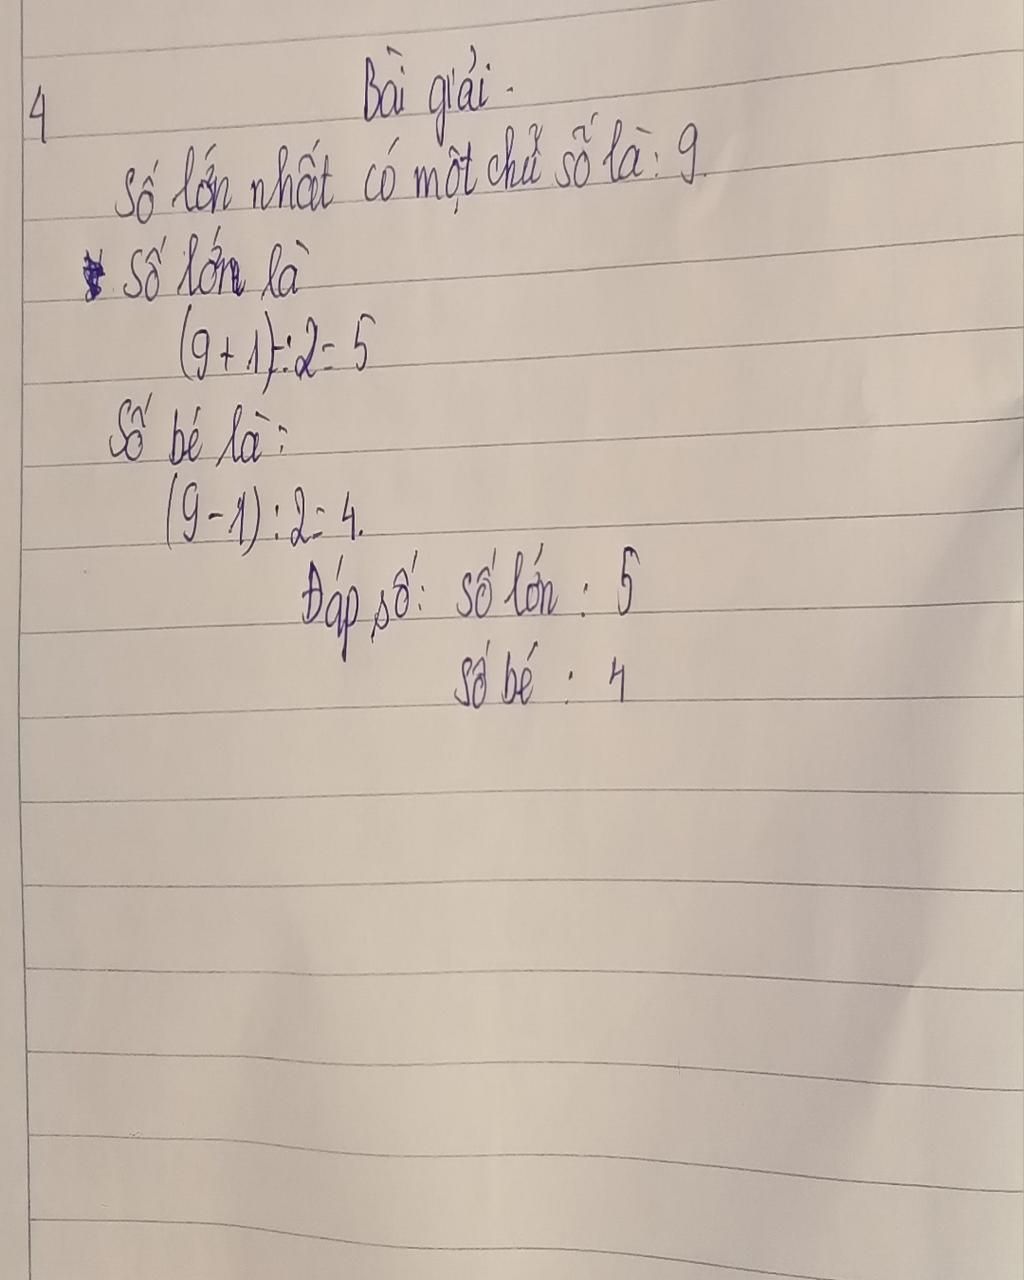 4 Bài giải.
Số lớn nhất có một chữ số là: 9.
Số lớn là
(9+1):2= 5
Số bé là:
(9-1):2= 4.
Đáp số: số lớn: 5
số bé: 4